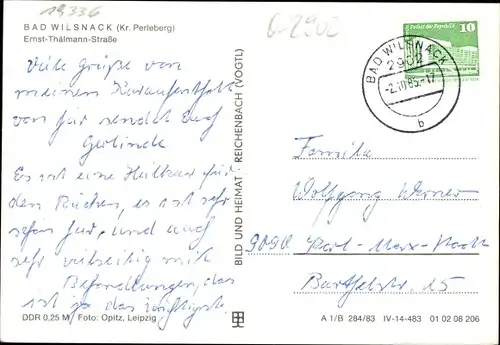 19336
G-2902
BAD WILSNACK (Kr. Perleberg)
Ernst-Thälmann-Straße
Viele Grüße von
meinem Kuraufenthalt
von hier sendet Euch
Gerlinde
Es ist eine Heilkur für
den Rücken, es ist sehr
schön hier, und auch
sehr vielseitig mit
Behandlungen, das
ist ja das wichtigste
DDR 0,25 M Foto: Opitz, Leipzig
BILD UND HEIMAT REICHENBACH (VOGTL)
Palast der Republik
10
BAD WILSNACK
2902
-2.10.85.-17
b
Familie
Wolfgang Werner
9090 Karl-Marx-Stadt
Barthelstr. 15
A 1/B 284/83 IV-14-483 01 02 08 206